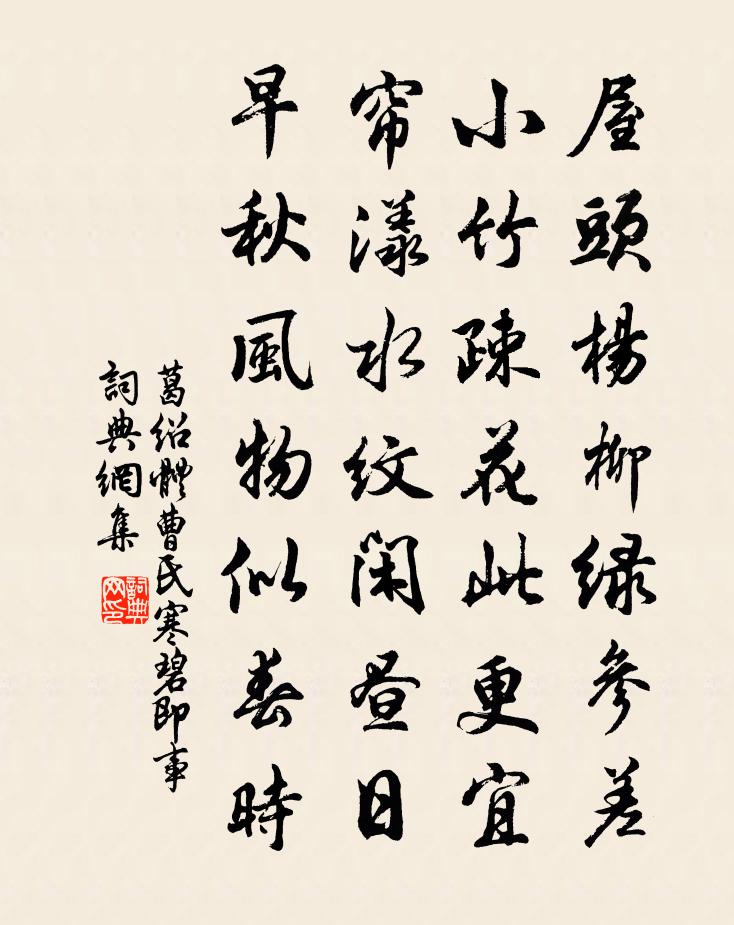 屋頭楊柳緑參差
小竹疎花此更宜
帘漾水紋閑晝日
早秋風物似春時
葛紹體曹民寒碧即事
詞典網集
詞典網印